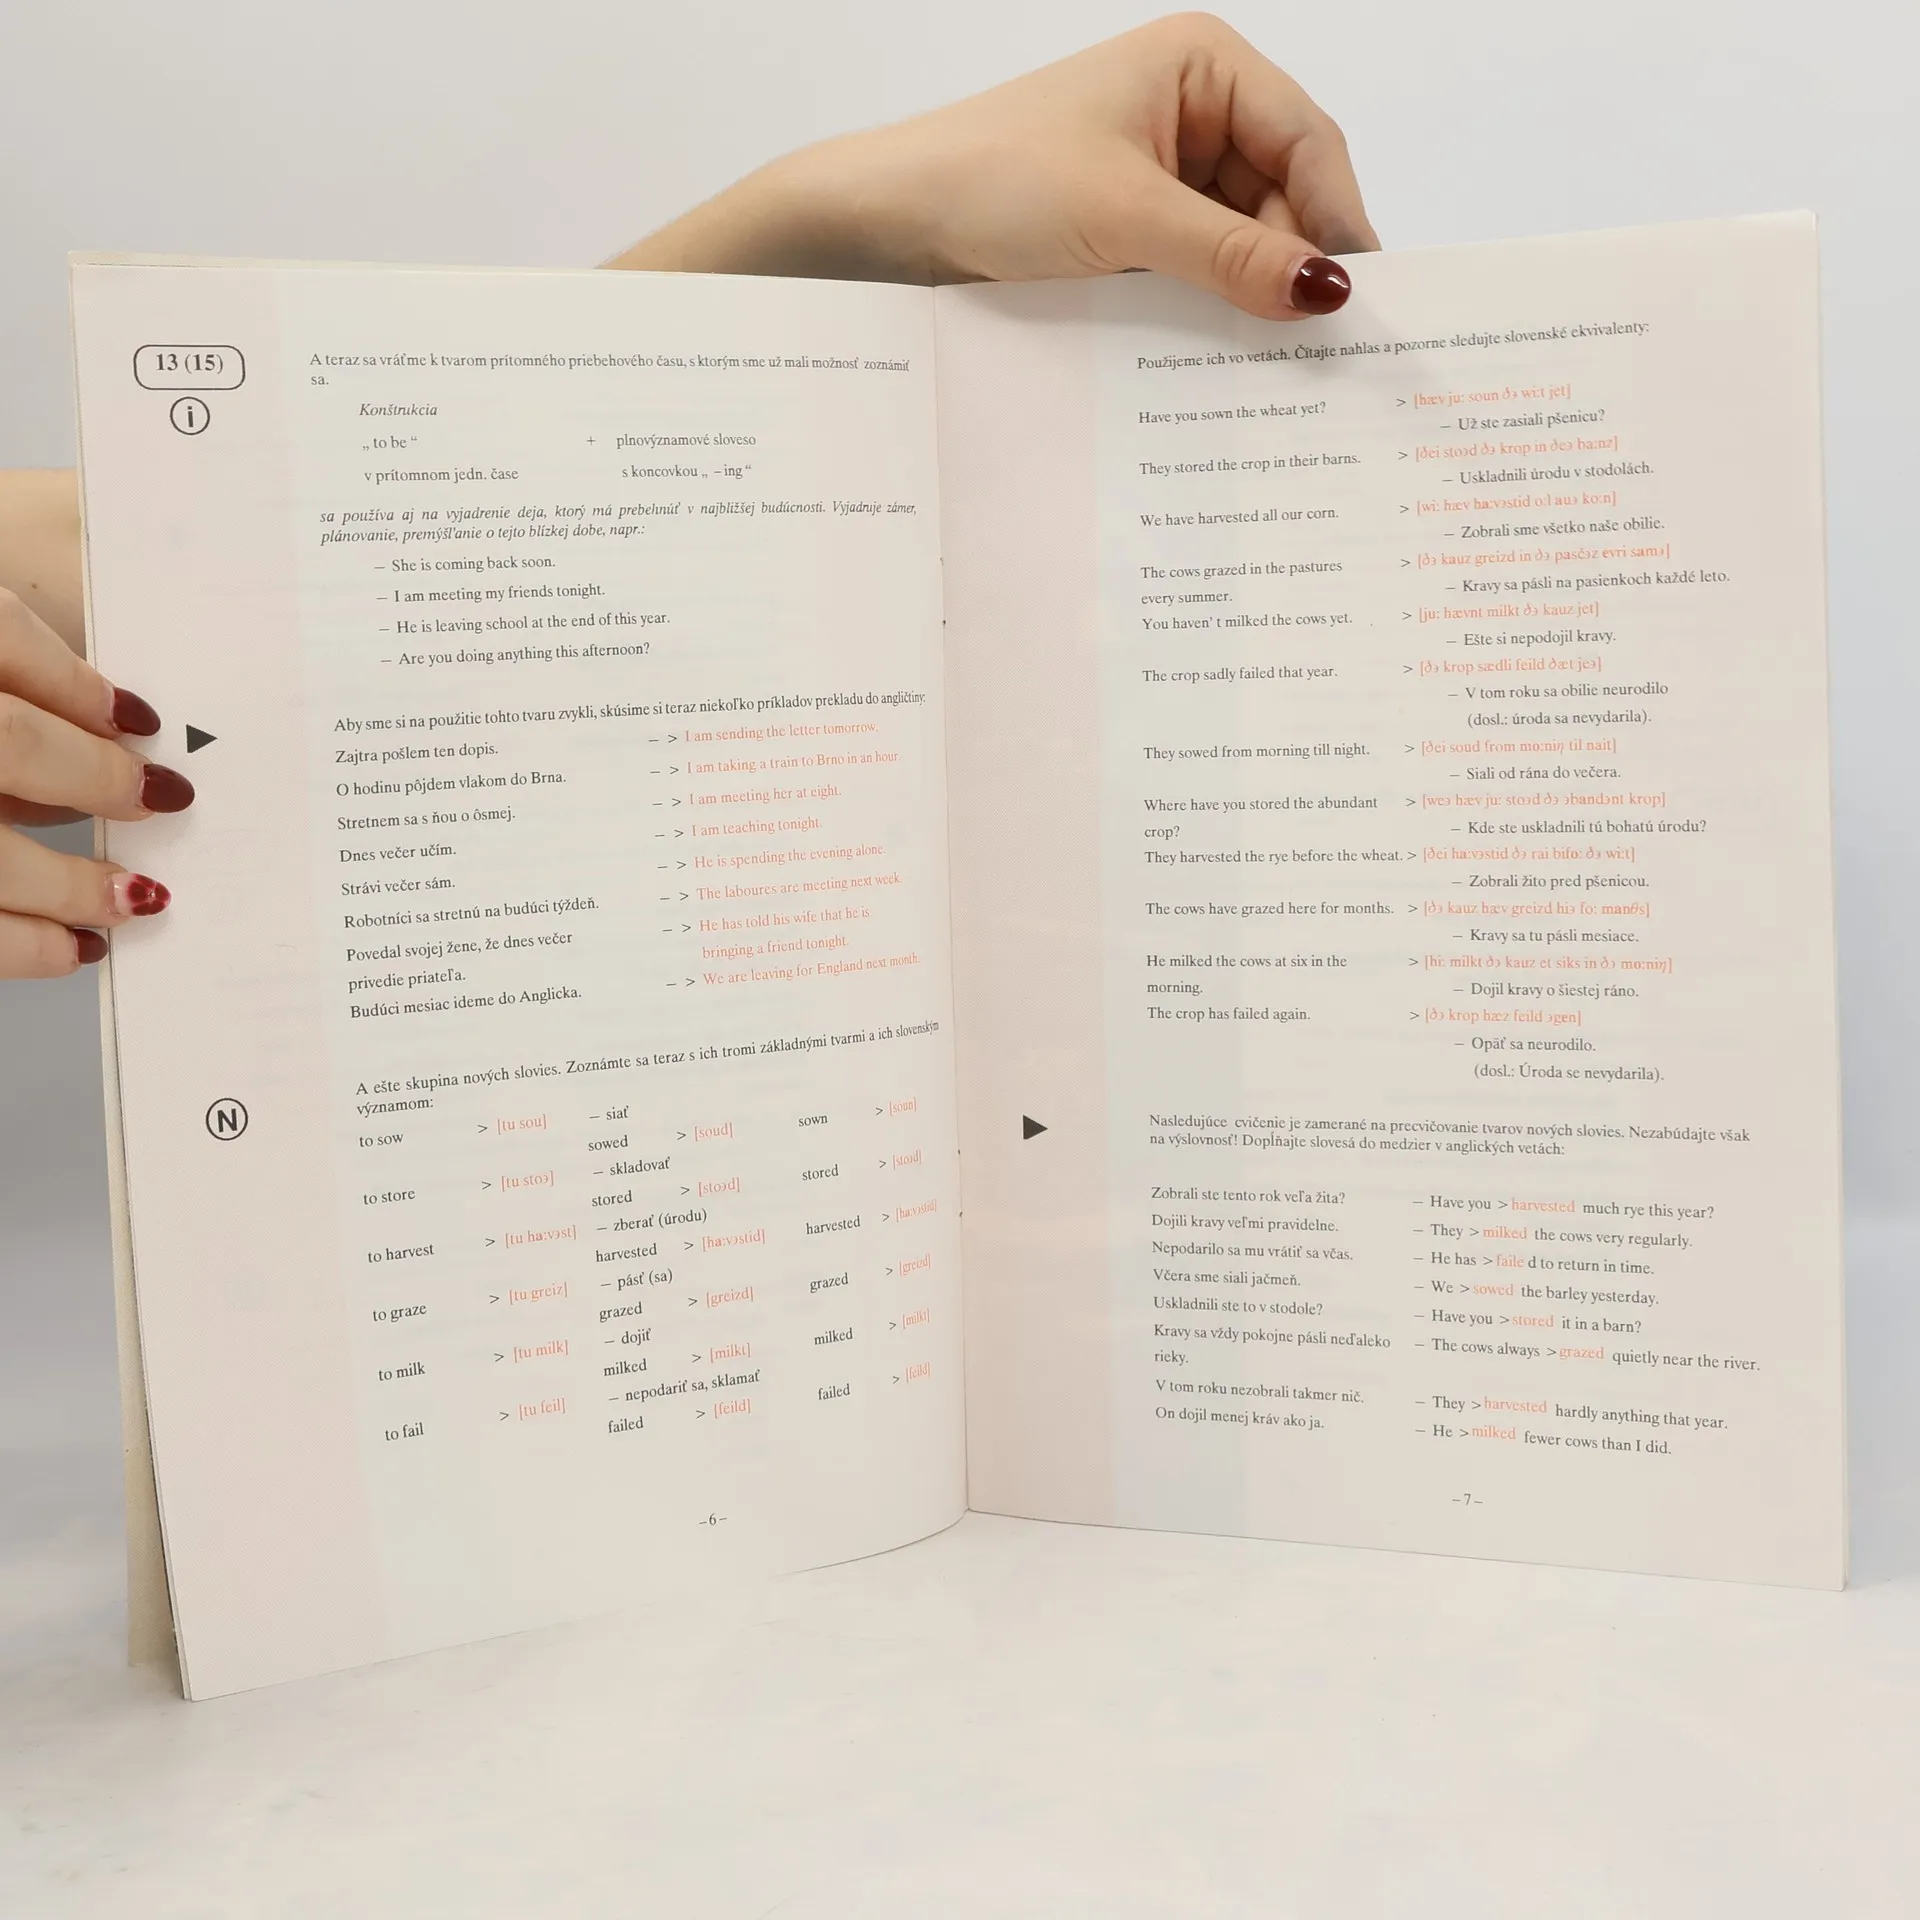 13 (15)
i
A teraz sa vráťme k tvarom prítomného priebehového času, s ktorým sme už mali možnosť zoznámiť
sa.
Konštrukcia
„ to be “ + plnovýznamové sloveso
v prítomnom jedn. čase s koncovkou „ – ing “
sa používa aj na vyjadrenie deja, ktorý má prebehnúť v najbližšej budúcnosti. Vyjadruje zámer,
plánovanie, premýšľanie o tejto blízkej dobe, napr.:
– She is coming back soon.
– I am meeting my friends tonight.
– He is leaving school at the end of this year.
– Are you doing anything this afternoon?
Aby sme si na použitie tohto tvaru zvykli, skúsime si teraz niekoľko príkladov prekladu do angličtiny:
Zajtra pošlem ten dopis. – > I am sending the letter tomorrow.
O hodinu pôjdem vlakom do Brna. – > I am taking a train to Brno in an hour
Stretnem sa s ňou o ôsmej. – > I am meeting her at eight.
Dnes večer učím. – > I am teaching tonight.
Strávi večer sám. – > He is spending the evening alone.
Robotníci sa stretnú na budúci týždeň. – > The laboures are meeting next week.
Povedal svojej žene, že dnes večer – > He has told his wife that he is
privedie priateľa. bringing a friend tonight.
Budúci mesiac ideme do Anglicka. – > We are leaving for England next month.
N
A ešte skupina nových slovies. Zoznámte sa teraz s ich tromi základnými tvarmi a ich slovenským
významom:
– siať
to sow > [tu sou] sowed > [soud] sown > [soun]
– skladovať
to store > [tu stoɜ] stored > [stoɜd] stored > [stoɜd]
– zberať (úrodu)
to harvest > [tu ha:vɜst] harvested > [ha:vɜstid] harvested > [ha:vɜstid]
– pásť (sa)
to graze > [tu greiz] grazed > [greizd] grazed > [greizd]
– dojiť
to milk > [tu milk] milked > [milkt] milked > [milkt]
– nepodariť sa, sklamať
to fail > [tu feil] failed > [feild] failed > [feild]
– 6 –
Použijeme ich vo vetách. Čítajte nahlas a pozorne sledujte slovenské ekvivalenty:
Have you sown the wheat yet? > [hæv ju: soun ðɜ wi:t jet]
– Už ste zasiali pšenicu?
They stored the crop in their barns. > [ðei stoɜd ðɜ krop in ðeɜ ba:nz]
– Uskladnili úrodu v stodolách.
We have harvested all our corn. > [wi: hæv ha:vɜstid o:l auɜ ko:n]
– Zobrali sme všetko naše obilie.
The cows grazed in the pastures > [ðɜ kauz greizd in ðɜ pasčɜz evri samɜ]
every summer. – Kravy sa pásli na pasienkoch každé leto.
You haven’ t milked the cows yet. > [ju: hævnt milkt ðɜ kauz jet]
– Ešte si nepodojil kravy.
The crop sadly failed that year. > [ðɜ krop sædli feild ðæt jeɜ]
– V tom roku sa obilie neurodilo
(dosl.: úroda sa nevydarila).
They sowed from morning till night. > [ðei soud from mo:niŋ til nait]
– Siali od rána do večera.
Where have you stored the abundant > [weɜ hæv ju: stoɜd ðɜ ɜbandɜnt krop]
crop? – Kde ste uskladnili tú bohatú úrodu?
They harvested the rye before the wheat. > [ðei ha:vɜstid ðɜ rai bifo: ðɜ wi:t]
– Zobrali žito pred pšenicou.
The cows have grazed here for months. > [ðɜ kauz hæv greizd hiɜ fo: manθs]
– Kravy sa tu pásli mesiace.
He milked the cows at six in the > [hi: milkt ðɜ kauz et siks in ðɜ mo:niŋ]
morning. – Dojil kravy o šiestej ráno.
The crop has failed again. > [ðɜ krop hæz feild ɜgen]
– Opäť sa neurodilo.
(dosl.: Úroda se nevydarila).
Nasledujúce cvičenie je zamerané na precvičovanie tvarov nových slovies. Nezabúdajte však
na výslovnosť! Dopĺňajte slovesá do medzier v anglických vetách:
Zobrali ste tento rok veľa žita? – Have you > harvested much rye this year?
Dojili kravy veľmi pravidelne. – They > milked the cows very regularly.
Nepodarilo sa mu vrátiť sa včas. – He has > faile d to return in time.
Včera sme siali jačmeň. – We > sowed the barley yesterday.
Uskladnili ste to v stodole? – Have you > stored it in a barn?
Kravy sa vždy pokojne pásli neďaleko – The cows always > grazed quietly near the river.
rieky.
V tom roku nezobrali takmer nič. – They > harvested hardly anything that year.
On dojil menej kráv ako ja. – He > milked fewer cows than I did.
– 7 –